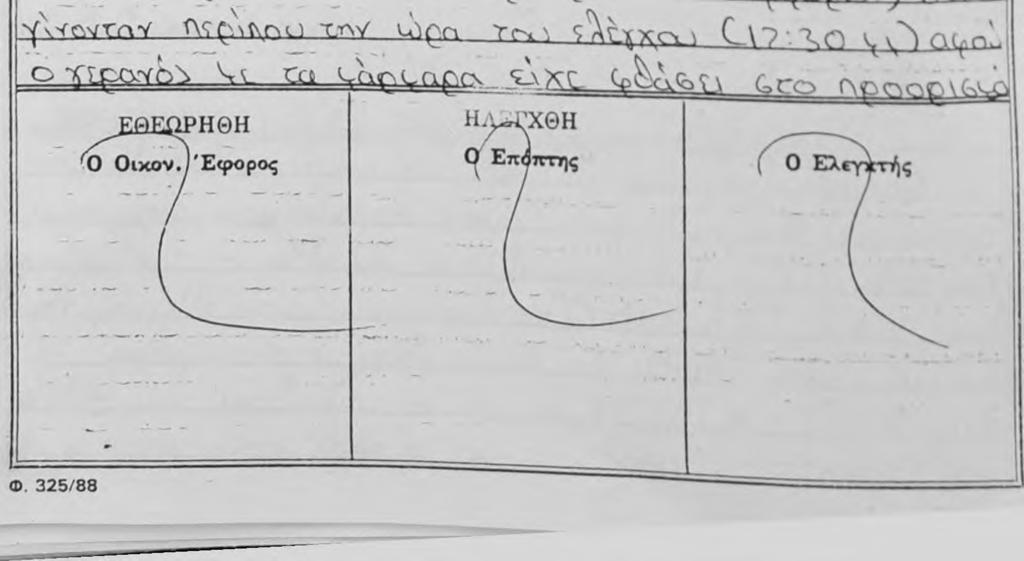 γίνονταν περίπου την ώρα του ελέγχου (12:30 μμ) αφού
ο γερανός με τα μάρμαρα είχε φθάσει στο προορισμό
ΕΘΕΩΡΗΘΗ
Ο Οικον. Έφορος
ΗΛΕΓΧΘΗ
Ο Επόπτης
Ο Ελεγκτής
Φ. 325/88